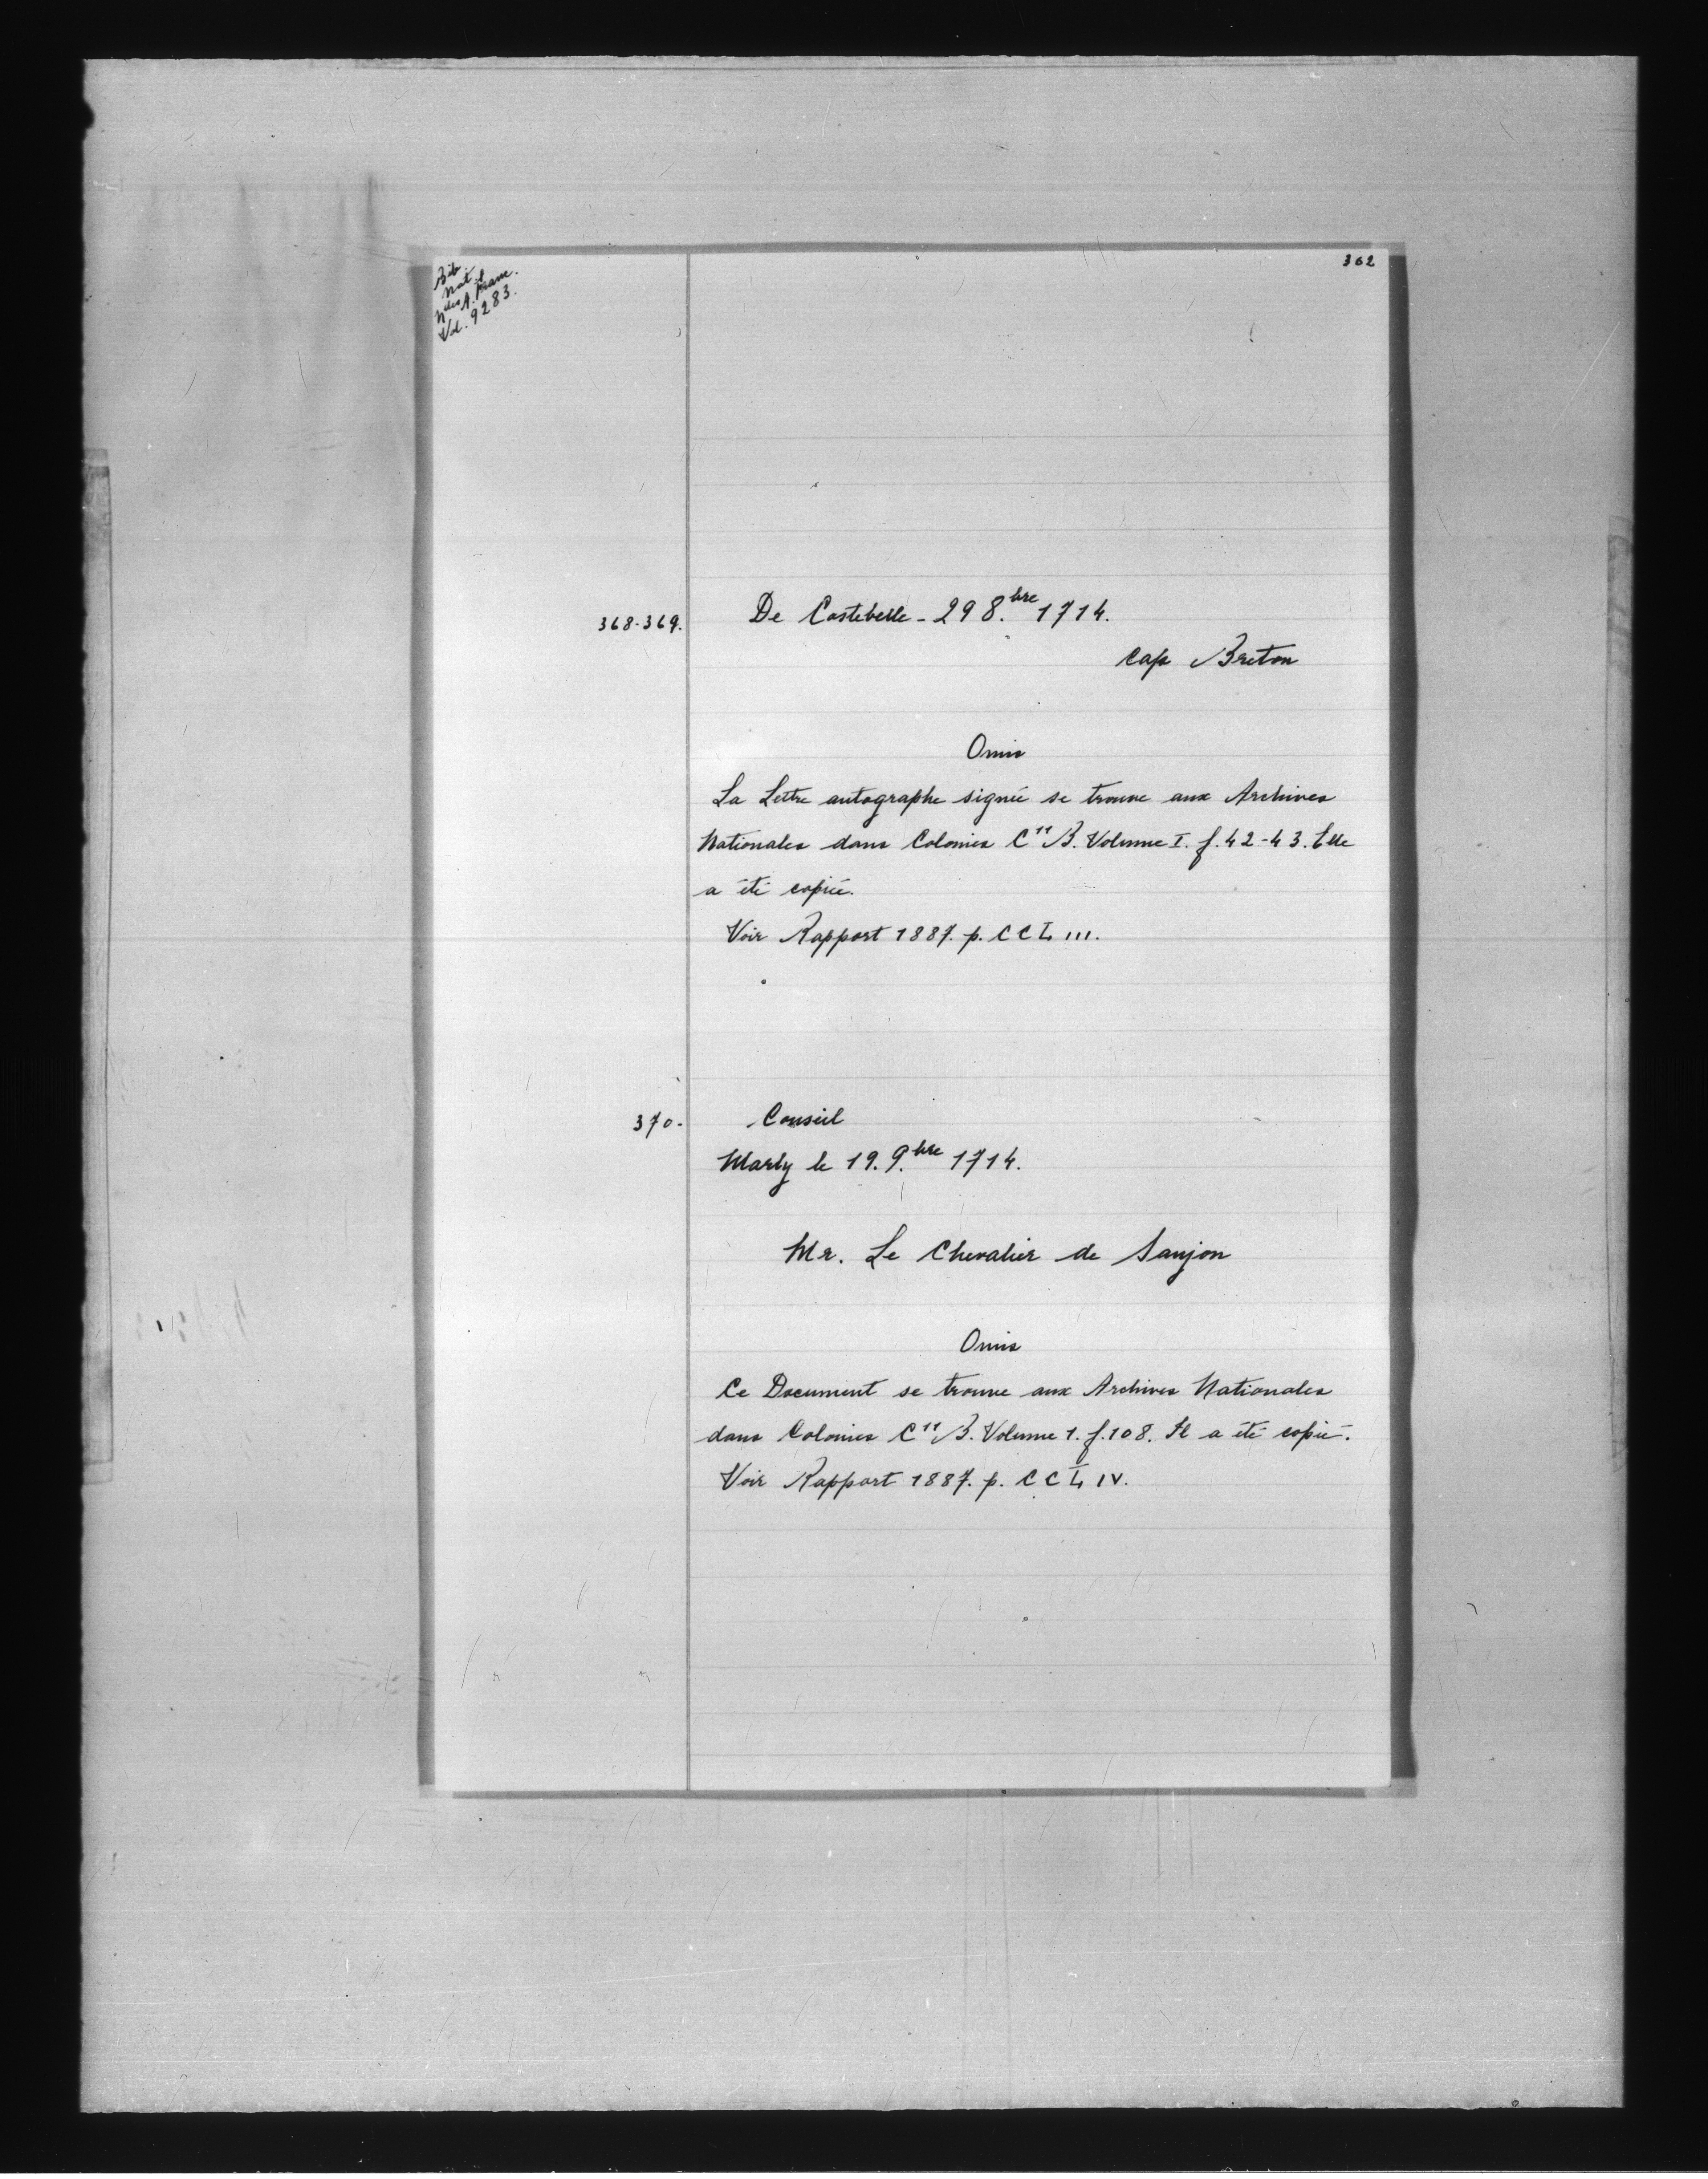 362
Bib.
Nat.
Nlles A. Franc.
Vol. 9283.
368-369. De Costebelle - 29 8.bre 1714.
Cap Breton
Omis
La Lettre autographe signée se trouve aux Archives
Nationales dans Colonies C11 B. Volume I. f. 42-43. Elle
a été copiée.
Voir Rapport 1887. p. CCLIII.
370. Conseil
Marly le 19. 9.bre 1714.
Mr. Le Chevalier de Saujon
Omis
Ce Document se trouve aux Archives Nationales
dans Colonies C11 B. Volume 1. f. 108. Il a été copié.
Voir Rapport 1887. p. CCLIV.